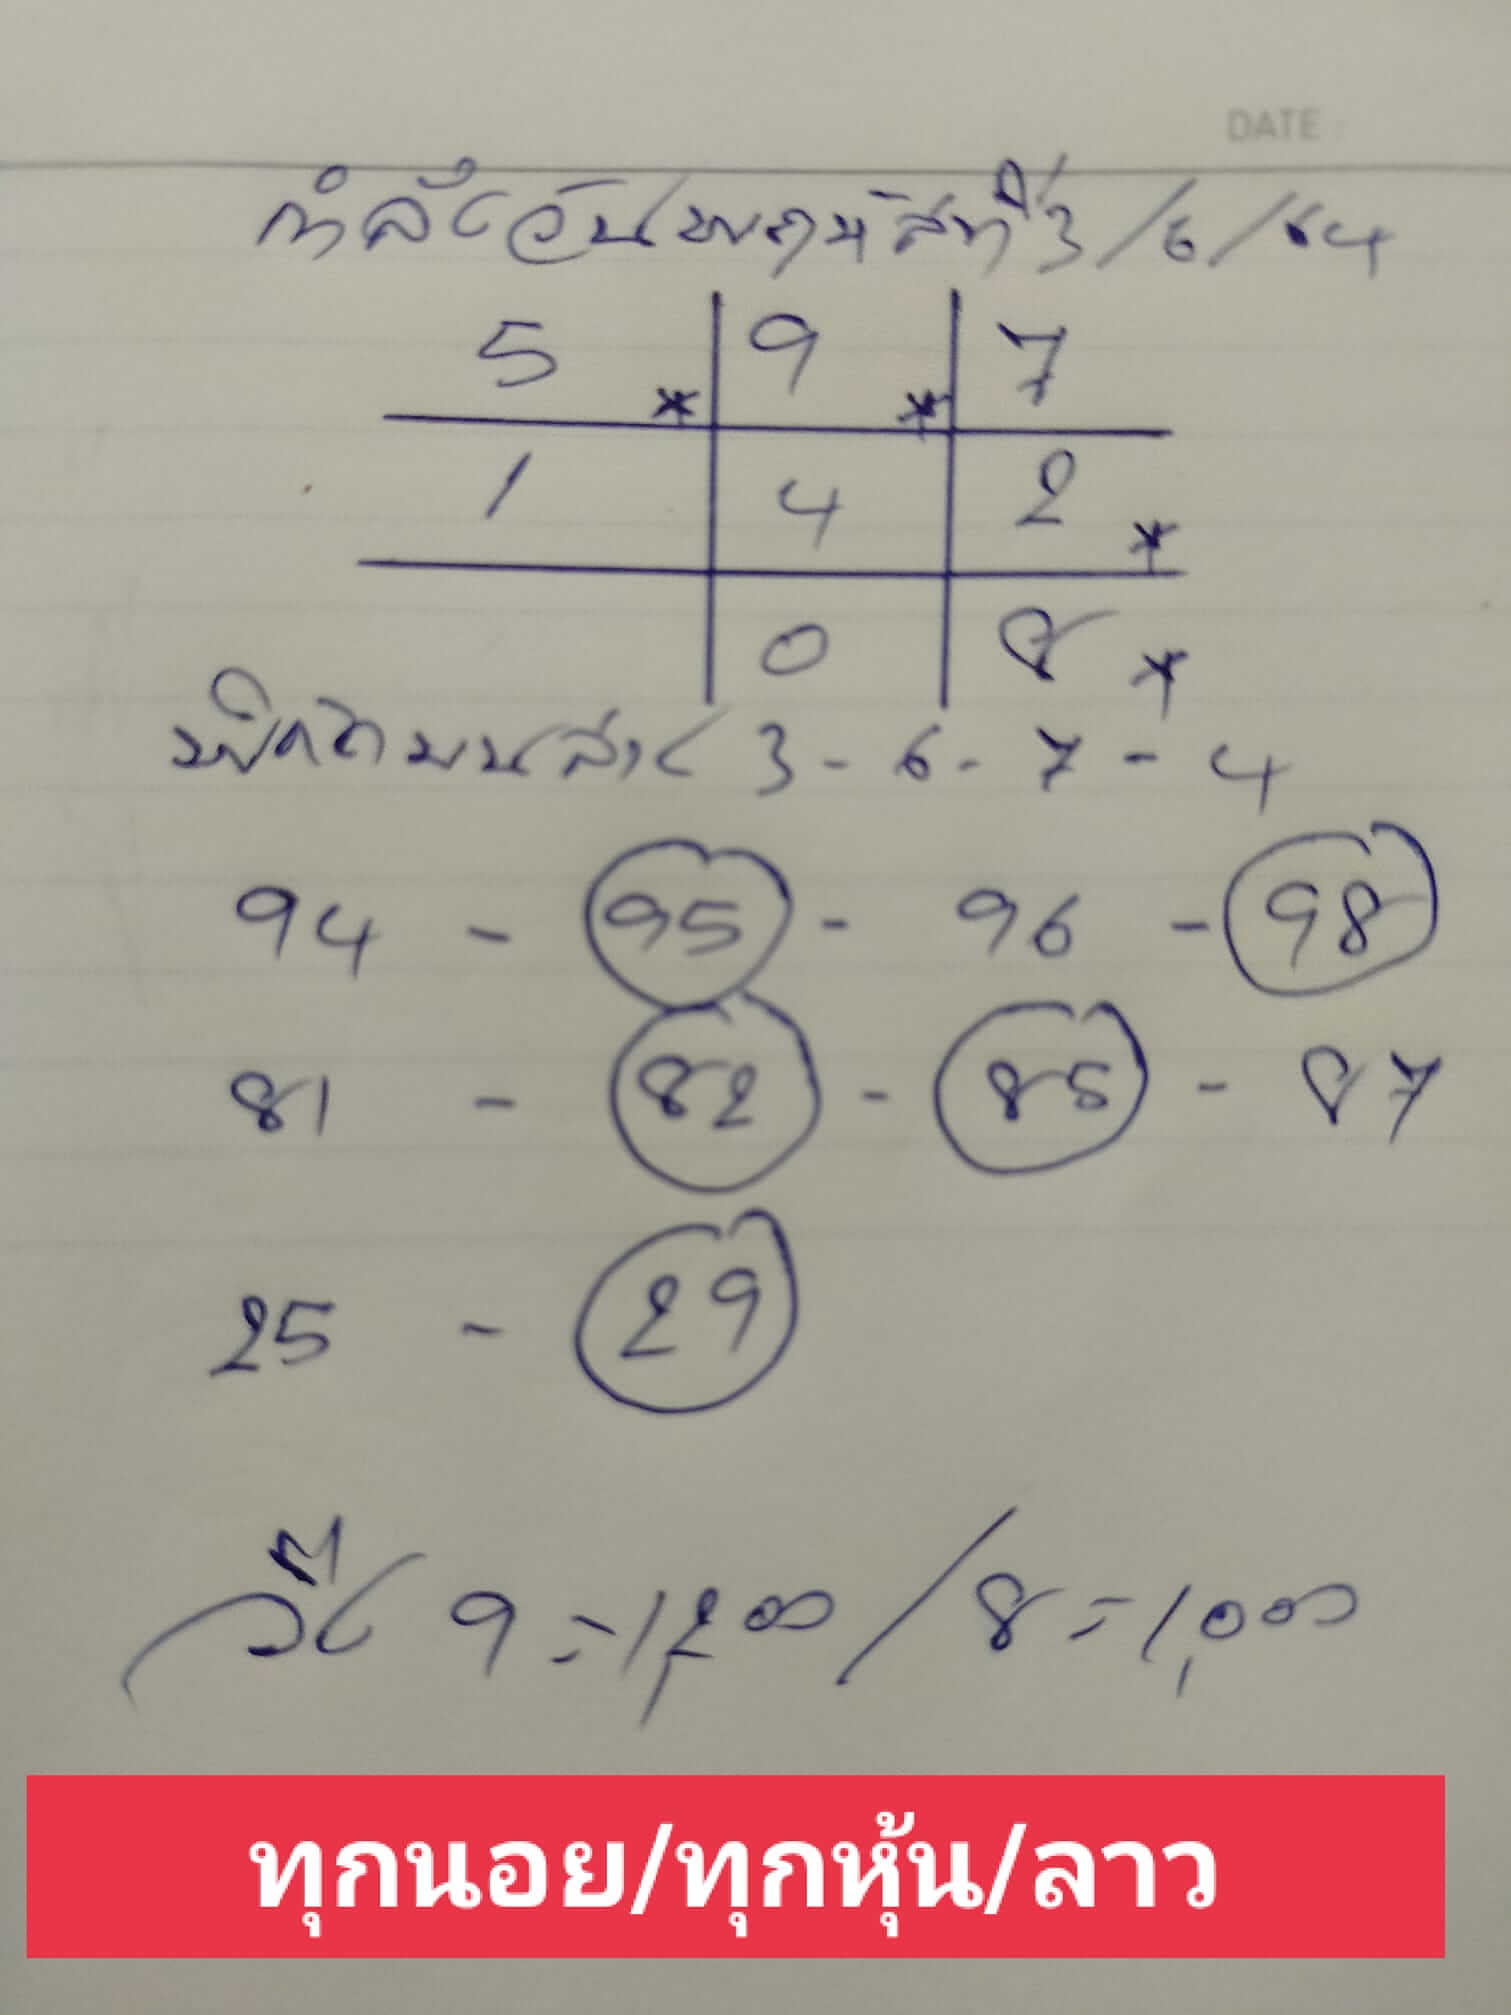 DATE
กำลังวันพฤหัสที่ 3/6/64
5 * 9 * 7
1 4 2 *
0 8 *
พิกัดบนล่าง 3-6-7-4
94 - 95 - 96 - 98
81 - 82 - 85 - 87
25 - 29
วิ่ง 9=1,200/8=1,000
ทุกนอย/ทุกหุ้น/ลาว